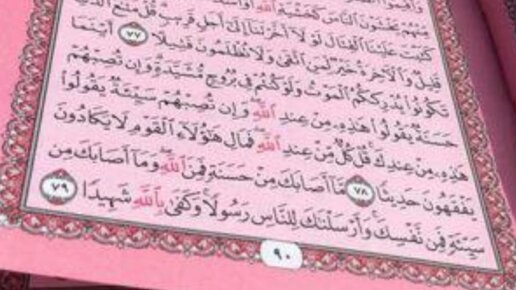 منهم يخشون الناس كخشية الله أو أشد
كتبت علينا القتال لولا أخرتنا إلى أجل قريب قل متع الدنيا
قليل والآخرة خير لمن اتقى ولا تظلمون فتيلا ٧٧ أينما
تكونوا يدرككم الموت ولو كنتم في بروج مشيدة وإن تصبهم
حسنة يقولوا هذه من عند الله وإن تصبهم سيئة يقولوا
هذه من عندك قل كل من عند الله فمال هؤلاء القوم لا يكادون
يفقهون حديثا ٧٨ ما أصابك من حسنة فمن الله وما أصابك من
سيئة فمن نفسك وأرسلنك للناس رسولا وكفى بالله شهيدا ٧٩
٩٠